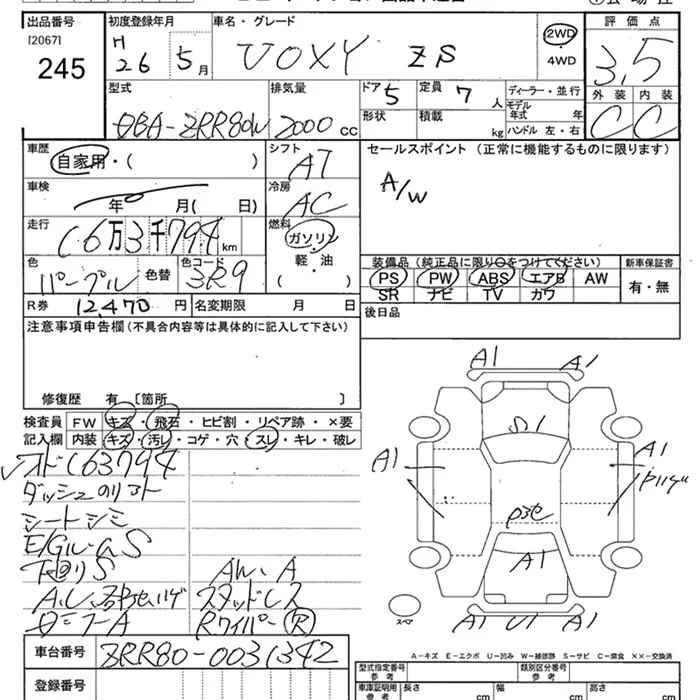 出品番号 初度登録年月 車名・グレード 評価点
[2067] H
245 26 5月 VOXY ZS 2WD 3.5
・
4WD
型式 排気量 ドア 定員 ディーラー・並行 外装 内装
DBA-ZRR80W 2000 CC 5 7人 モデル年式 年 C C
形状 積載 kg ハンドル 左・右
車歴 シフト セールスポイント (正常に機能するものに限ります)
自家用・( ) AT A/W
車検 冷房
年 月( 日) AC
走行 燃料
(6万3千794 km ガソリン
軽・油
( )
色 色替 色コード 装備品(純正品に限り○をつけてください) 新車保証書
パープル 3R9 PS PW ABS エアB AW 有・無
SR ナビ TV カワ
R券 12,470円 名変期限 月 日 後日品
注意事項申告欄(不具合内容等は具体的に記入して下さい)
修復歴 有 [箇所 ]
検査員 FW キズ・飛石・ヒビ割・リペア跡・×要
記入欄 内装 キズ・汚レ・コゲ・穴・スレ・キレ・破レ
63794
ダッシュ
シートシミ
下回りS AW.A
スタッドレス
Rワイパー R
車台番号 ZRR80-0031342
登録番号
A1 A1
S1
A1 A1
A1
A1 U1 A1
スペア
A-キズ E-エクボ U-凹み W-補修跡 S-サビ C-腐食 XX-交換済
型式指定番号 参考 類別区分番号 参考
車庫証明用 参考 長さ cm 幅 cm 高さ cm